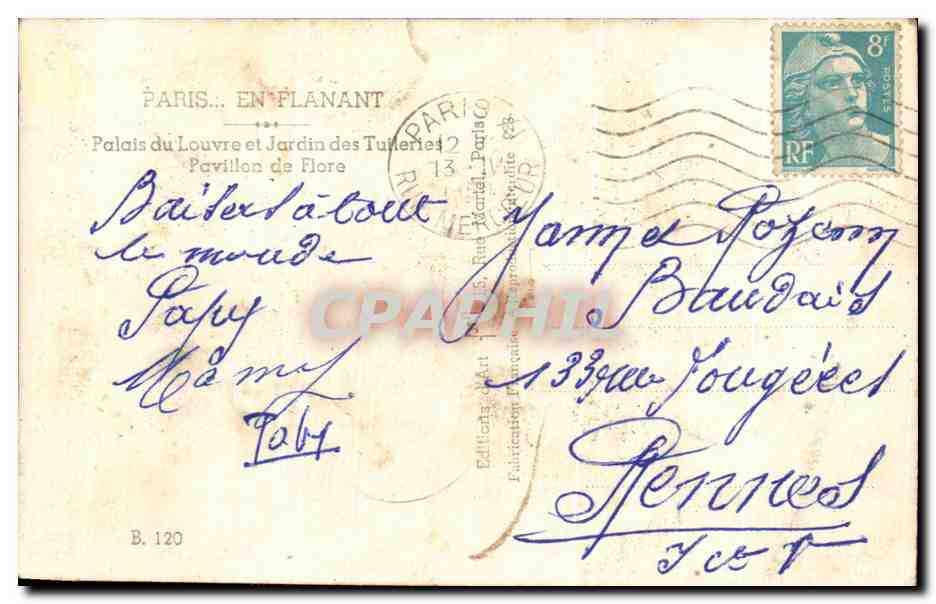 PARIS... EN FLANANT
Palais du Louvre et Jardin des Tuileries
Pavillon de Flore
Baisers à tout
le monde
Papy
Mamy
Gaby
B. 120
Editions d'Art
15, Rue Martel, Paris
Fabrication Française
Reproduction interdite
PARIS
12
13
RUE
8F
POSTES
RF
Rozenn
Baudais
133 rue Fougères
Rennes
I et V
CPAPHIL